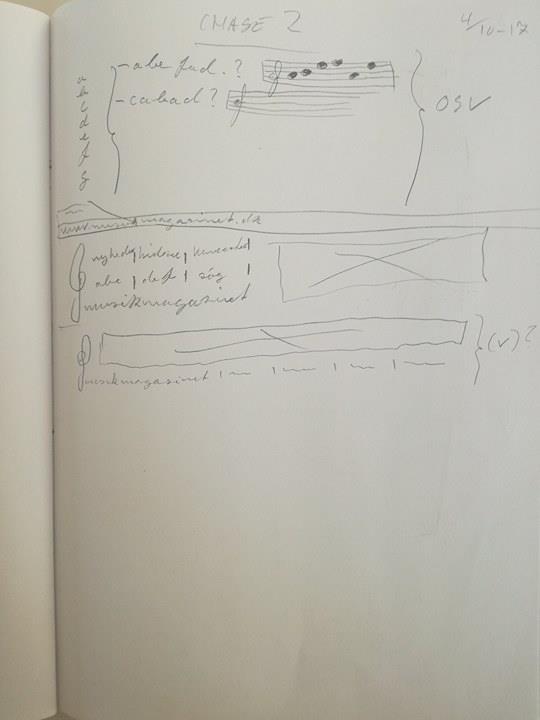 CMASE 2
4/10-17
a
b
c
d
e
f
g
- abe fad. ?
- cabad ?
OSV
www.musikmagasinet.dk
nyheder | | 
abc | def | søg |
musikmagasinet
musikmagasinet | | | |
(v) ?